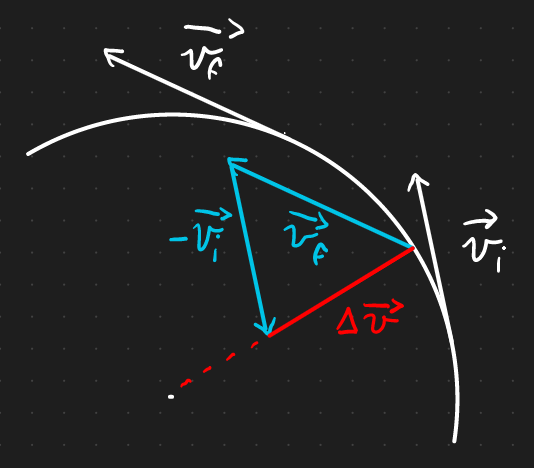 $\vec{v_f}$
$-\vec{v_i}$
$\vec{v_f}$
$\vec{v_i}$
$\Delta\vec{v}$